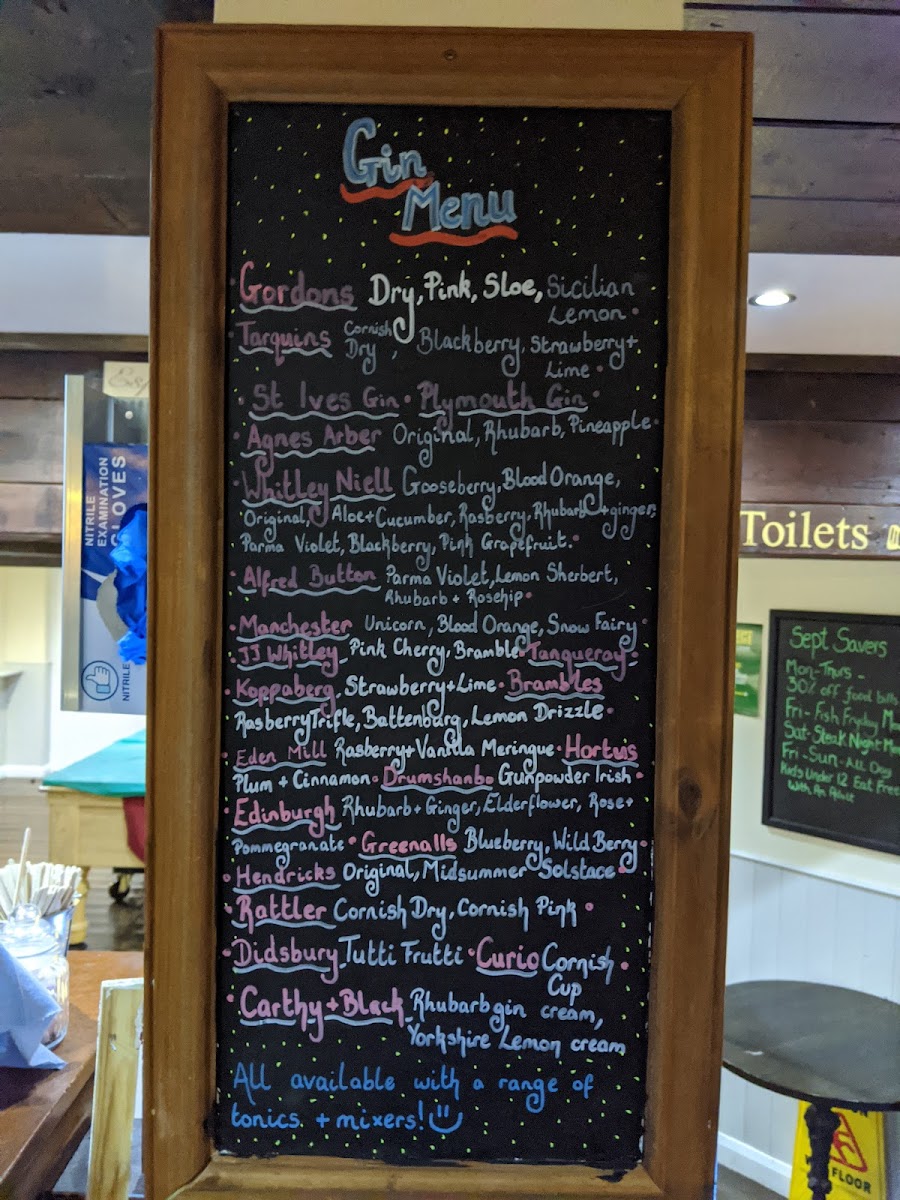 Gin
Menu
Gordons Dry, Pink, Sloe, Sicilian
Lemon ·
Tarquins Cornish Dry, Blackberry, Strawberry +
Lime ·
· St Ives Gin · Plymouth Gin ·
· Agnes Arber Original, Rhubarb, Pineapple ·
· Whitley Niell Gooseberry, Blood Orange,
Original, Aloe + Cucumber, Rasberry, Rhubarb + ginger,
Parma Violet, Blackberry, Pink Grapefruit. ·
· Alfred Button Parma Violet, Lemon Sherbert,
Rhubarb + Rosehip ·
· Manchester Unicorn, Blood Orange, Snow Fairy ·
· JJ Whitley Pink Cherry, Bramble · Tanqueray ·
· Koppaberg, Strawberry + Lime · Brambles
Rasberry Trifle, Battenburg, Lemon Drizzle ·
· Eden Mill Rasberry + Vanilla Meringue · Hortus
Plum + Cinnamon · Drumshanbo Gunpowder Irish ·
Edinburgh Rhubarb + Ginger, Elderflower, Rose +
Pommegranate · Greenalls Blueberry, Wild Berry ·
· Hendricks Original, Midsummer Solstace ·
· Rattler Cornish Dry, Cornish Pink ·
· Didsbury Tutti Frutti · Curio Cornish ·
Cup
· Carthy + Black Rhubarb gin cream,
Yorkshire Lemon cream
All available with a range of
tonics + mixers!
NITRILE
EXAMINATION
GLOVES
NITRILE
Toilets
Sept Savers
Mon-Thurs -
30% off food bills
Fri - Fish Fryday
Sat - Steak Night
Fri - Sun - ALL Day
Kids Under 12 Eat Free
With An Adult
FLOOR